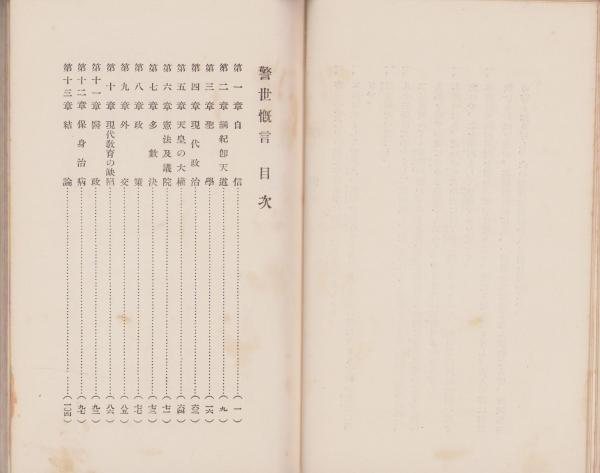 警世慨言 目次
第一章 自信……(一)
第二章 綱紀卽天道……(九)
第三章 聖學……(一六)
第四章 現代政治……(六三)
第五章 天皇の大權……(六四)
第六章 憲法及議院……(七一)
第七章 多數決……(七三)
第八章 政策……(七七)
第九章 外交……(八五)
第十章 現代敎育の缺陷……(八六)
第十一章 醫政……(九三)
第十二章 保身治病……(九七)
第十三章 結論……(一三四)